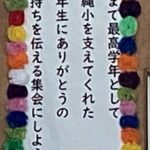 まで最高学年として
縄小を支えてくれた
年生にありがとうの
持ちを伝える集会にしよう